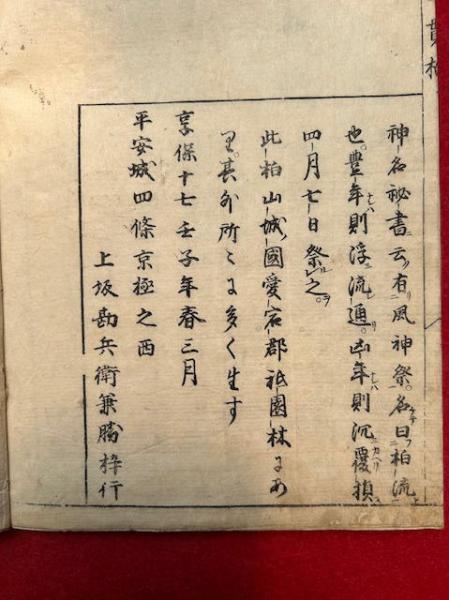 神名秘書云有風神祭名曰柏流
也豊年則浮流通凶年則沉覆損
四月七日祭之
此柏山城國愛宕郡祇園林にあ
り其外所々に多く生す
享保十七壬子年春三月
平安城四條京極之西
上坂勘兵衛兼勝梓行